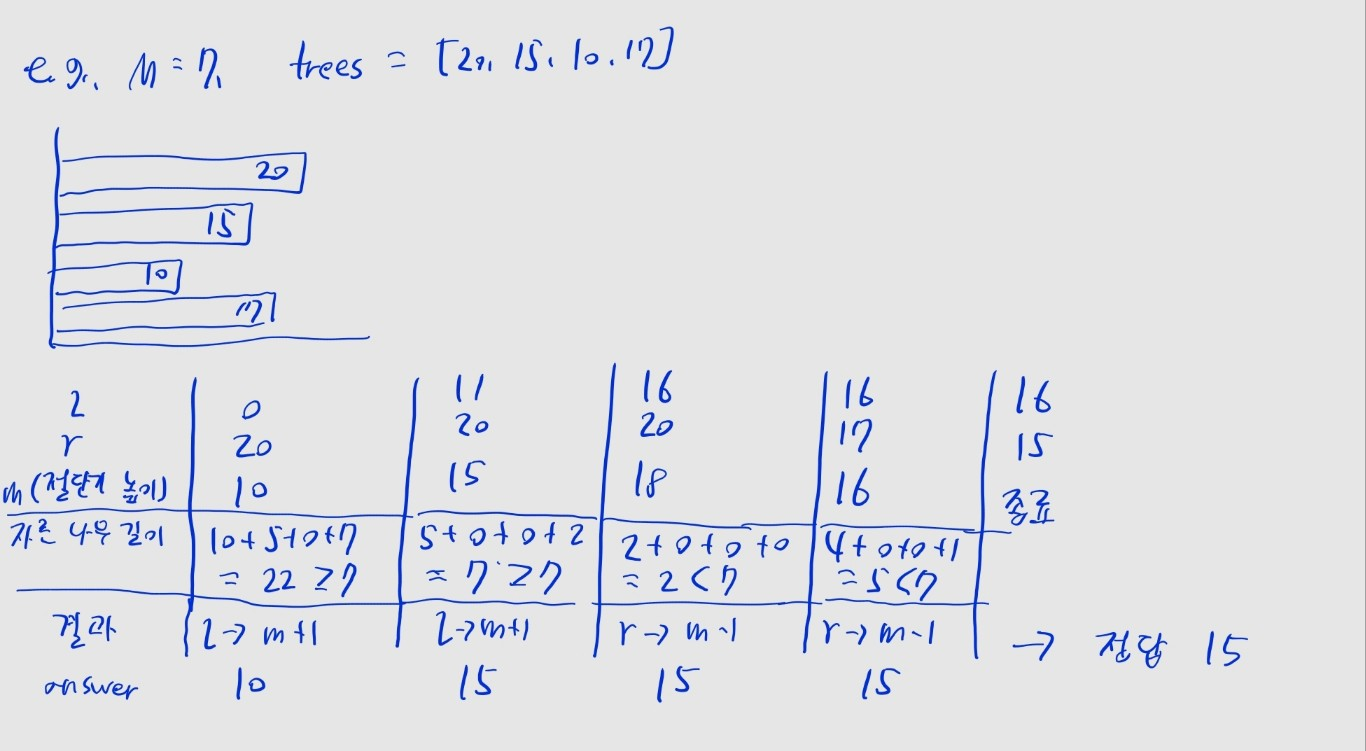 e.g. M = 7, trees = [20, 15, 10, 17]
20
15
10
17
l 0 11 16 16 16
r 20 20 20 17 15
m (절단기 높이) 10 15 18 16 종료
자른 나무 길이 10+5+0+7 5+0+0+2 2+0+0+0 4+0+0+1
= 22 ≥ 7 = 7 ≥ 7 = 2 < 7 = 5 < 7
결과 l → m+1 l → m+1 r → m-1 r → m-1 → 정답 15
answer 10 15 15 15